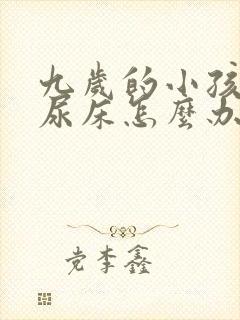 九歲的小孩
尿床怎麼办
党李鑫